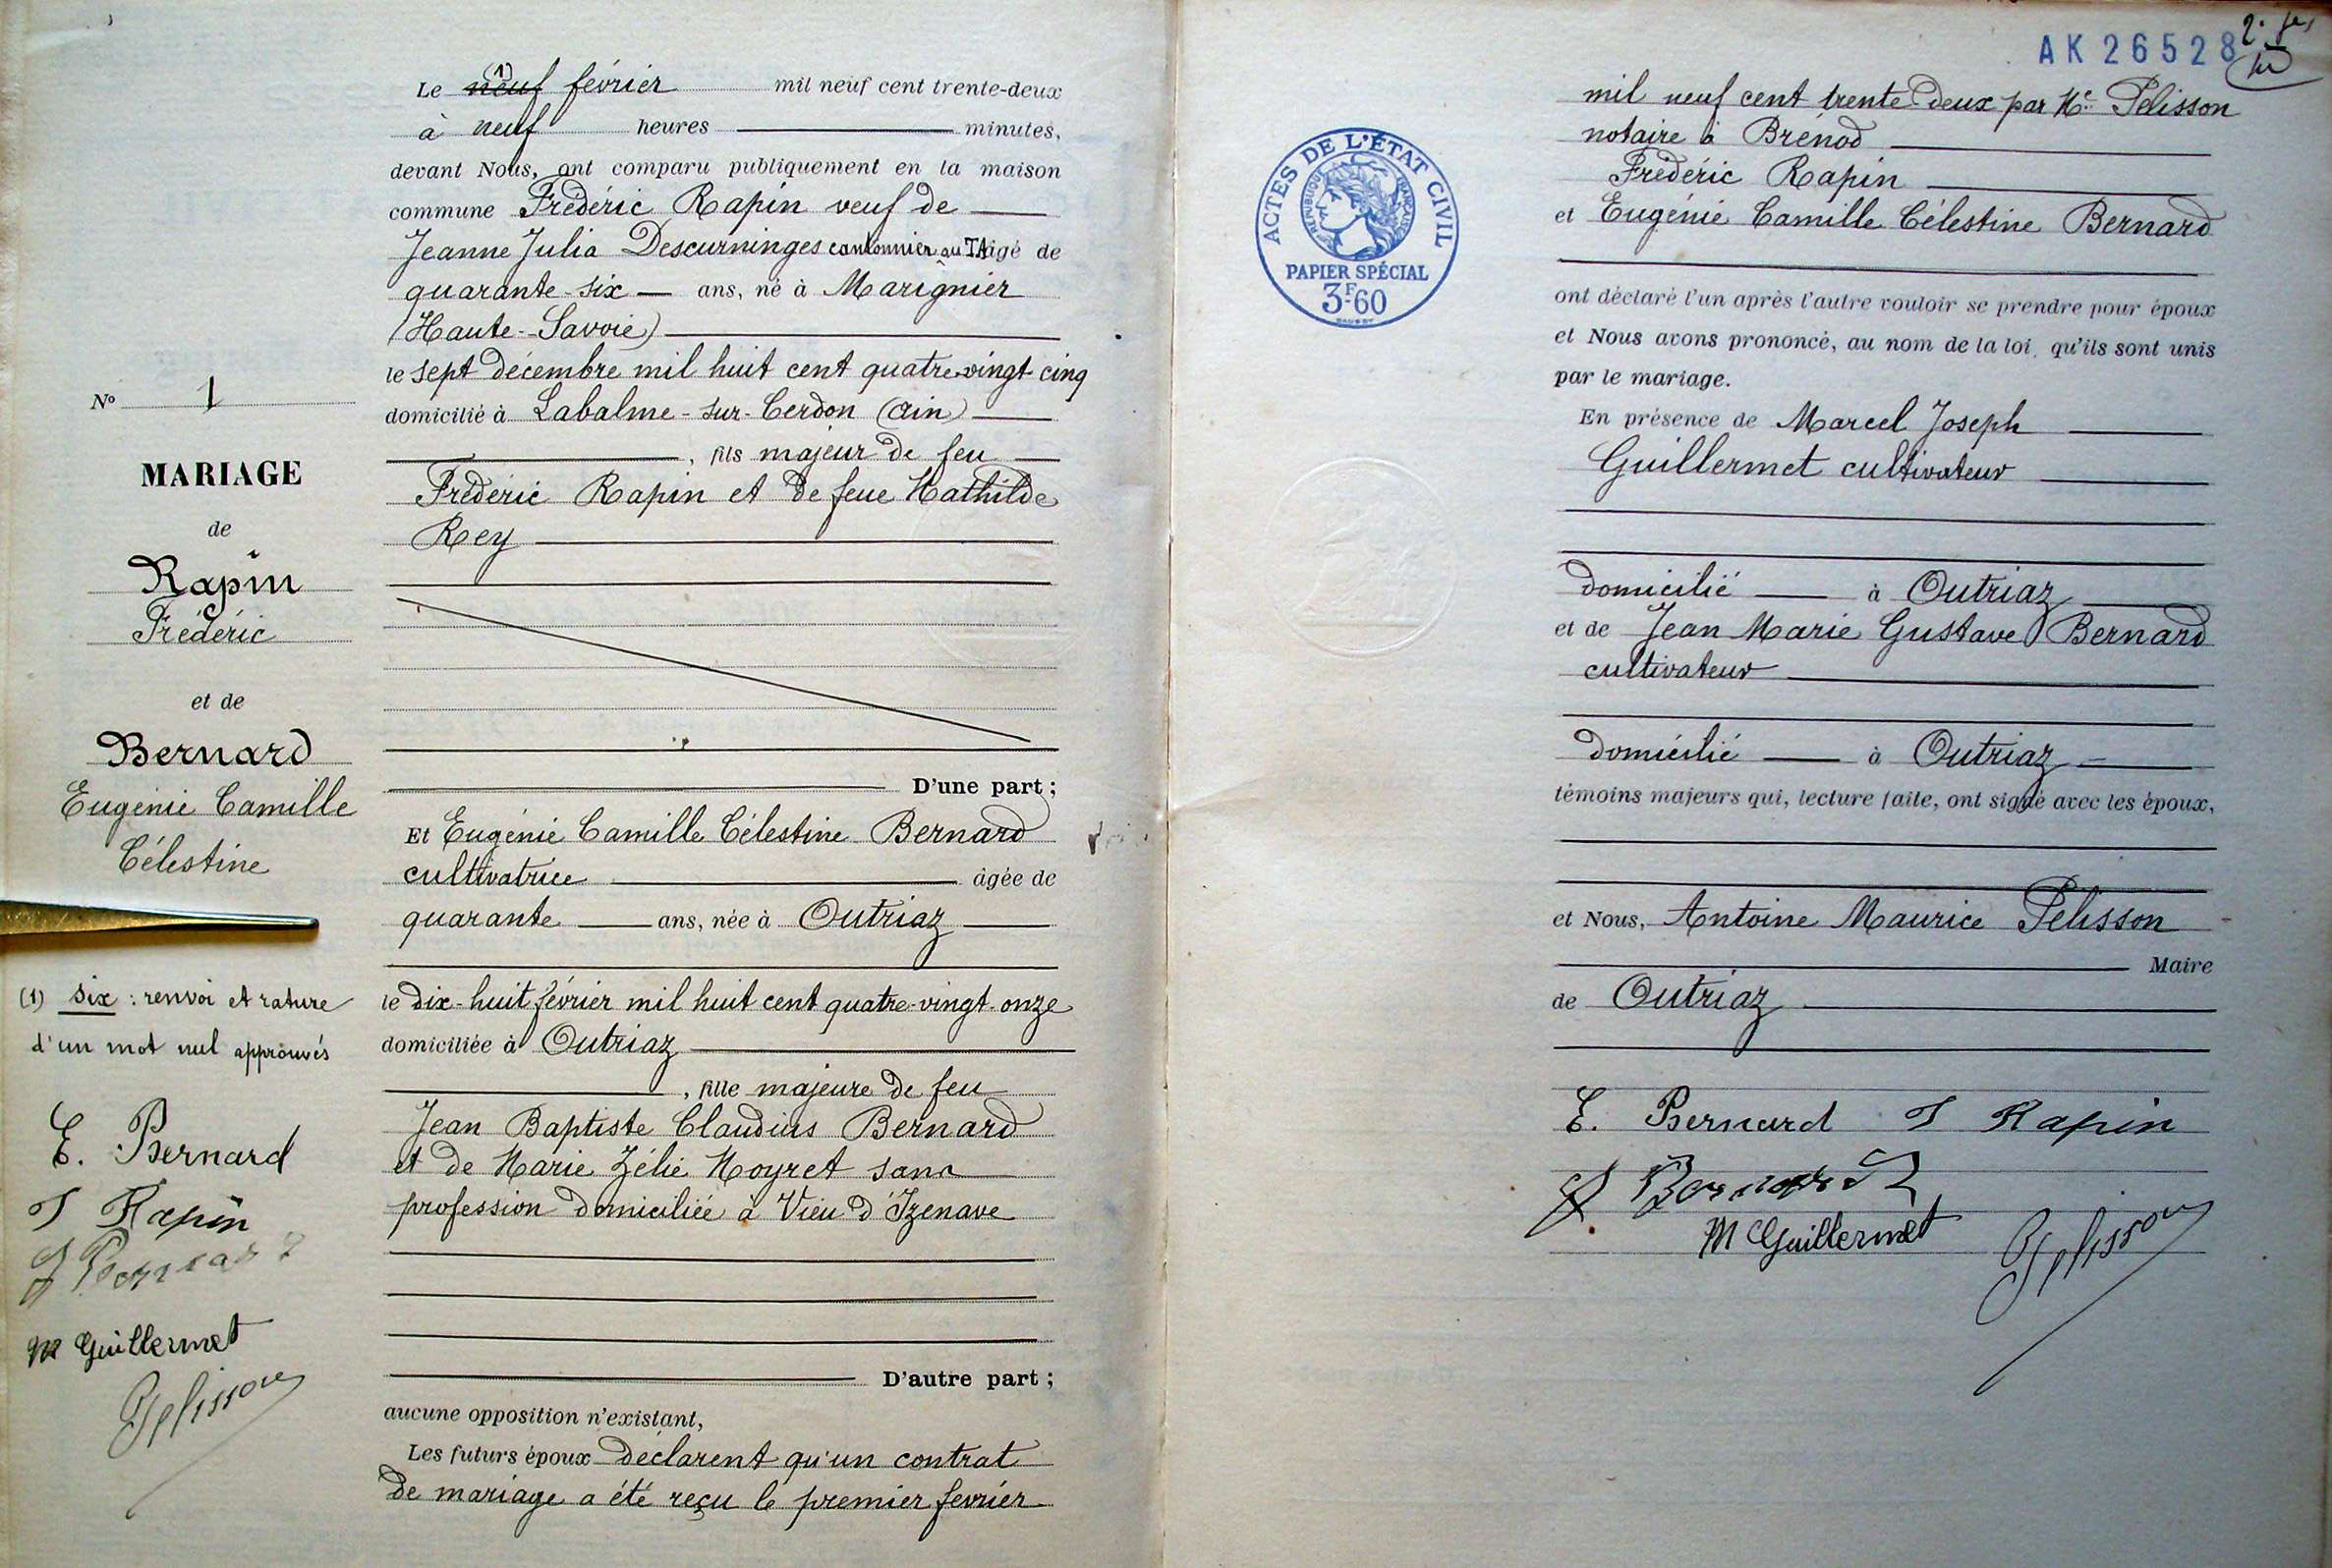 N° 1
MARIAGE
de
Rapin
Frédéric
et de
Bernard
Eugénie Camille
Célestine
(1) six : renvoi et rature
d'un mot nul approuvés
E. Bernard
F Rapin
J Bernard
M Guillermet
Pelisson
(1)
Le neuf février mil neuf cent trente-deux
à neuf heures minutes,
devant Nous, ont comparu publiquement en la maison
commune Frédéric Rapin veuf de
Jeanne Julia Descurninges cantonnier au TA âgé de
quarante-six ans, né à Marignier
(Haute-Savoie)
le sept décembre mil huit cent quatre-vingt cinq
domicilié à Labalme-sur-Cerdon (Ain)
, fils majeur de feu
Frédéric Rapin et de feue Mathilde
Rey
D'une part ;
Et Eugénie Camille Célestine Bernard
cultivatrice âgée de
quarante ans, née à Outriaz
le dix-huit février mil huit cent quatre-vingt-onze
domiciliée à Outriaz
, fille majeure de feu
Jean Baptiste Claudius Bernard
et de Marie Zélie Moyret sans
profession domiciliée à Vieu d'Izenave
D'autre part ;
aucune opposition n'existant,
Les futurs époux déclarent qu'un contrat
de mariage a été reçu le premier février
AK 26528
ACTES DE L'ÉTAT CIVIL
RÉPUBLIQUE FRANÇAISE
PAPIER SPÉCIAL
3F60
mil neuf cent trente-deux par Me Pelisson
notaire à Brénod
Frédéric Rapin
et Eugénie Camille Célestine Bernard
ont déclaré l'un après l'autre vouloir se prendre pour époux
et Nous avons prononcé, au nom de la loi, qu'ils sont unis
par le mariage.
En présence de Marcel Joseph
Guillermet cultivateur
domicilié à Outriaz
et de Jean Marie Gustave Bernard
cultivateur
domicilié à Outriaz
témoins majeurs qui, lecture faite, ont signé avec les époux,
et Nous, Antoine Maurice Pelisson
Maire
de Outriaz
E. Bernard F Rapin
J Bernard
M Guillermet Pelisson